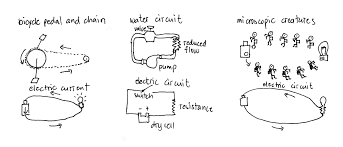 bicycle pedal and chain
electric current
water circuit
valve
reduced
flow
pump
electric circuit
switch
resistance
- +
dry cell
microscopic creatures
electric circuit